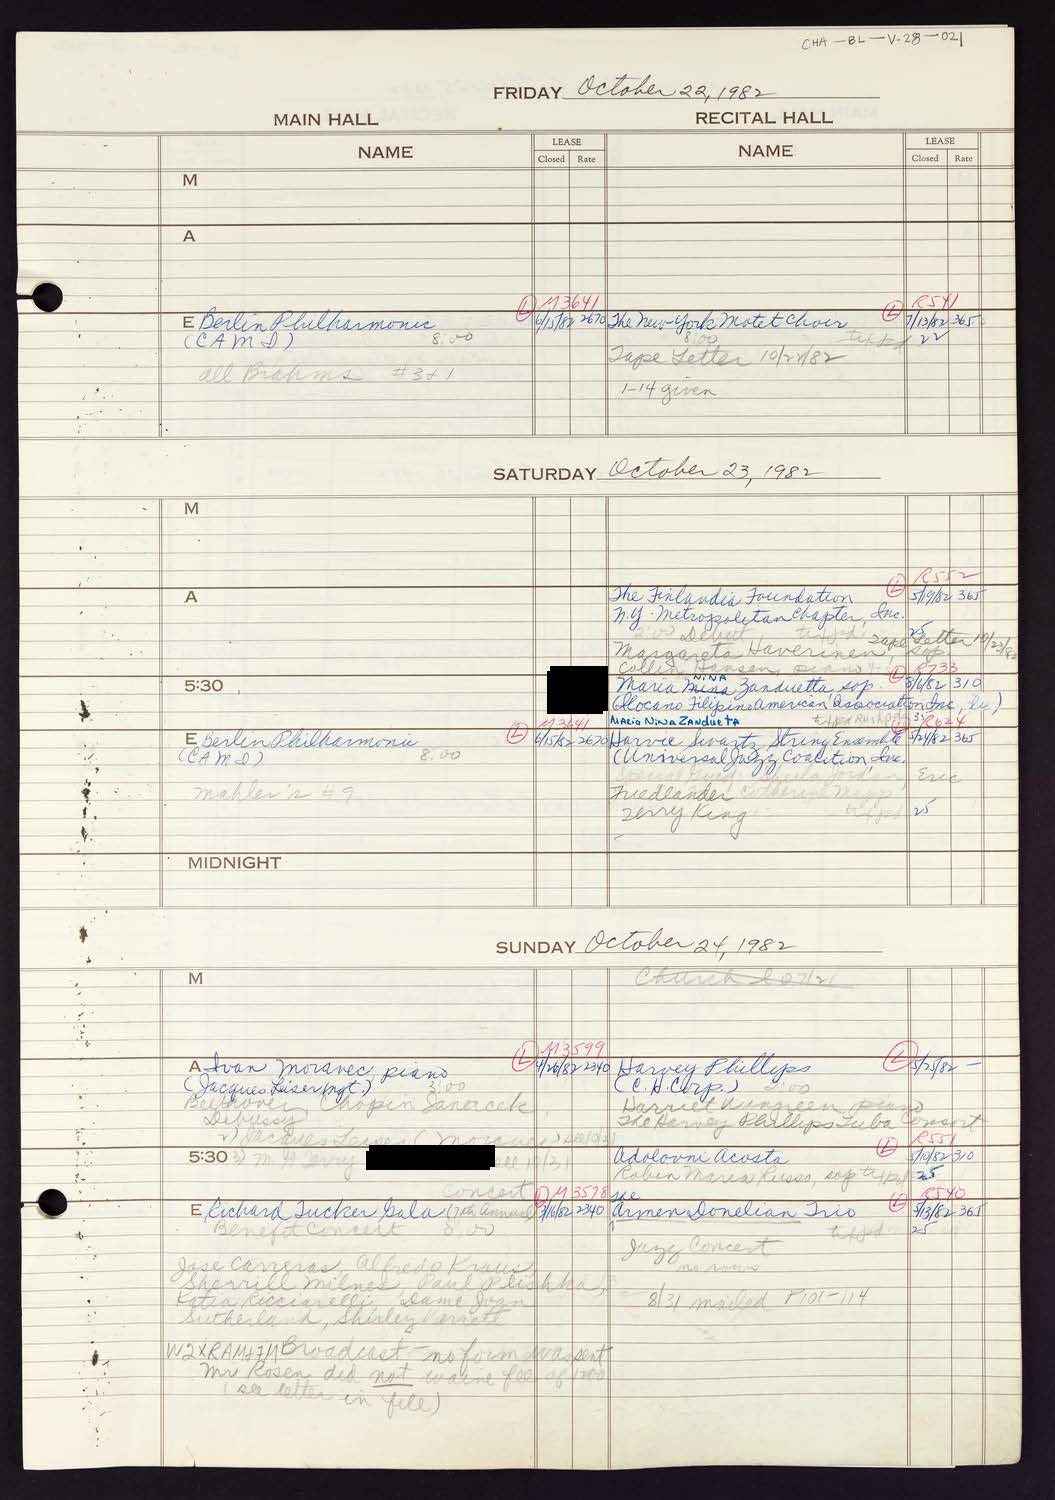 CHA-BL-V-28-021
FRIDAY October 22, 1982
MAIN HALL RECITAL HALL
NAME LEASE Closed Rate NAME LEASE Closed Rate
M
A
(L) M3641 (L) R541
E Berlin Philharmonic 6/15/82 2670 The New York Motet Choir 7/13/82 365
(CAMI) 8:00 8:00 22
all Brahms #3+1 Tape Letter 10/22/82
1-14 given
SATURDAY October 23, 1982
M
(L) R552
A The Finlandia Foundation 5/19/82 365
N.Y. Metropolitan Chapter, Inc.
2:00 Debut 25
Margareta Haverinen, sop. Tape Letter 10/23/82
Collin Hansen, piano (L) R733
5:30 Maria Nina Zanduetta sop. 8/6/82 310
(Ilocano Filipino American Association Inc,
(L) M3641 MARIA NINA ZANDUETA R624
E Berlin Philharmonic 6/15/82 2670 Harvie Swartz String Ensemble 5/24/82 365
(CAMI) 8:00 (Universal Jazz Coalition, Inc.
Special Guest: Sheila Jordan, Eric
Mahler's #9 Friedlander,
Jerry King 25
MIDNIGHT
SUNDAY October 24, 1982
M Church
(L) M3599 (L)
A Ivan Moravec, piano 4/26/82 2340 Harvey Phillips 5/25/82 -
(Jacques Leiser Mgt.) 3:00 (C.H. Corp.) 2:00
Beethoven, Chopin, Janacek, Harriet Wingreen piano
Debussy The Harvey Phillips Tuba Consort
(L) R551
5:30 Adolovni Acosta 5/10/82 310
Robin Maria Russo, sop 25
Concert (L) M3578 (L) R540
E Richard Tucker Gala (7th Annual 3/16/82 2340 Armen Donelian Trio 5/13/82 365
Benefit Concert 8:00 25
Jazz Concert
Jose Carreras, Alfredo Kraus,
Sherrill Milnes, Paul Plishka,
Katia Ricciarelli, Dame Joan 8/31 mailed P101-114
Sutherland, Shirley Verrett
WQXR AM+FM Broadcast - no form was sent
Mr Rosen did not waive fee of
(see letter in file)